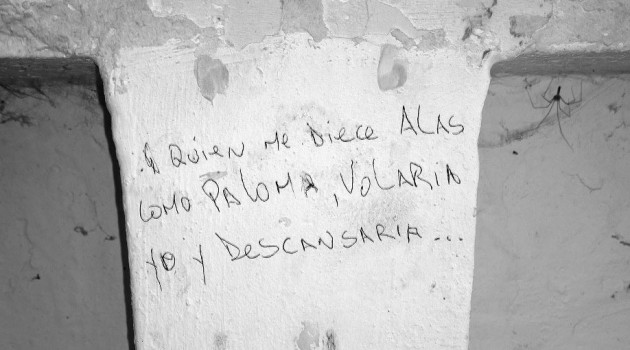 ¡ QUIEN ME DIECE ALAS
COMO PALOMA, VOLARIA
YO Y DESCANSARIA...